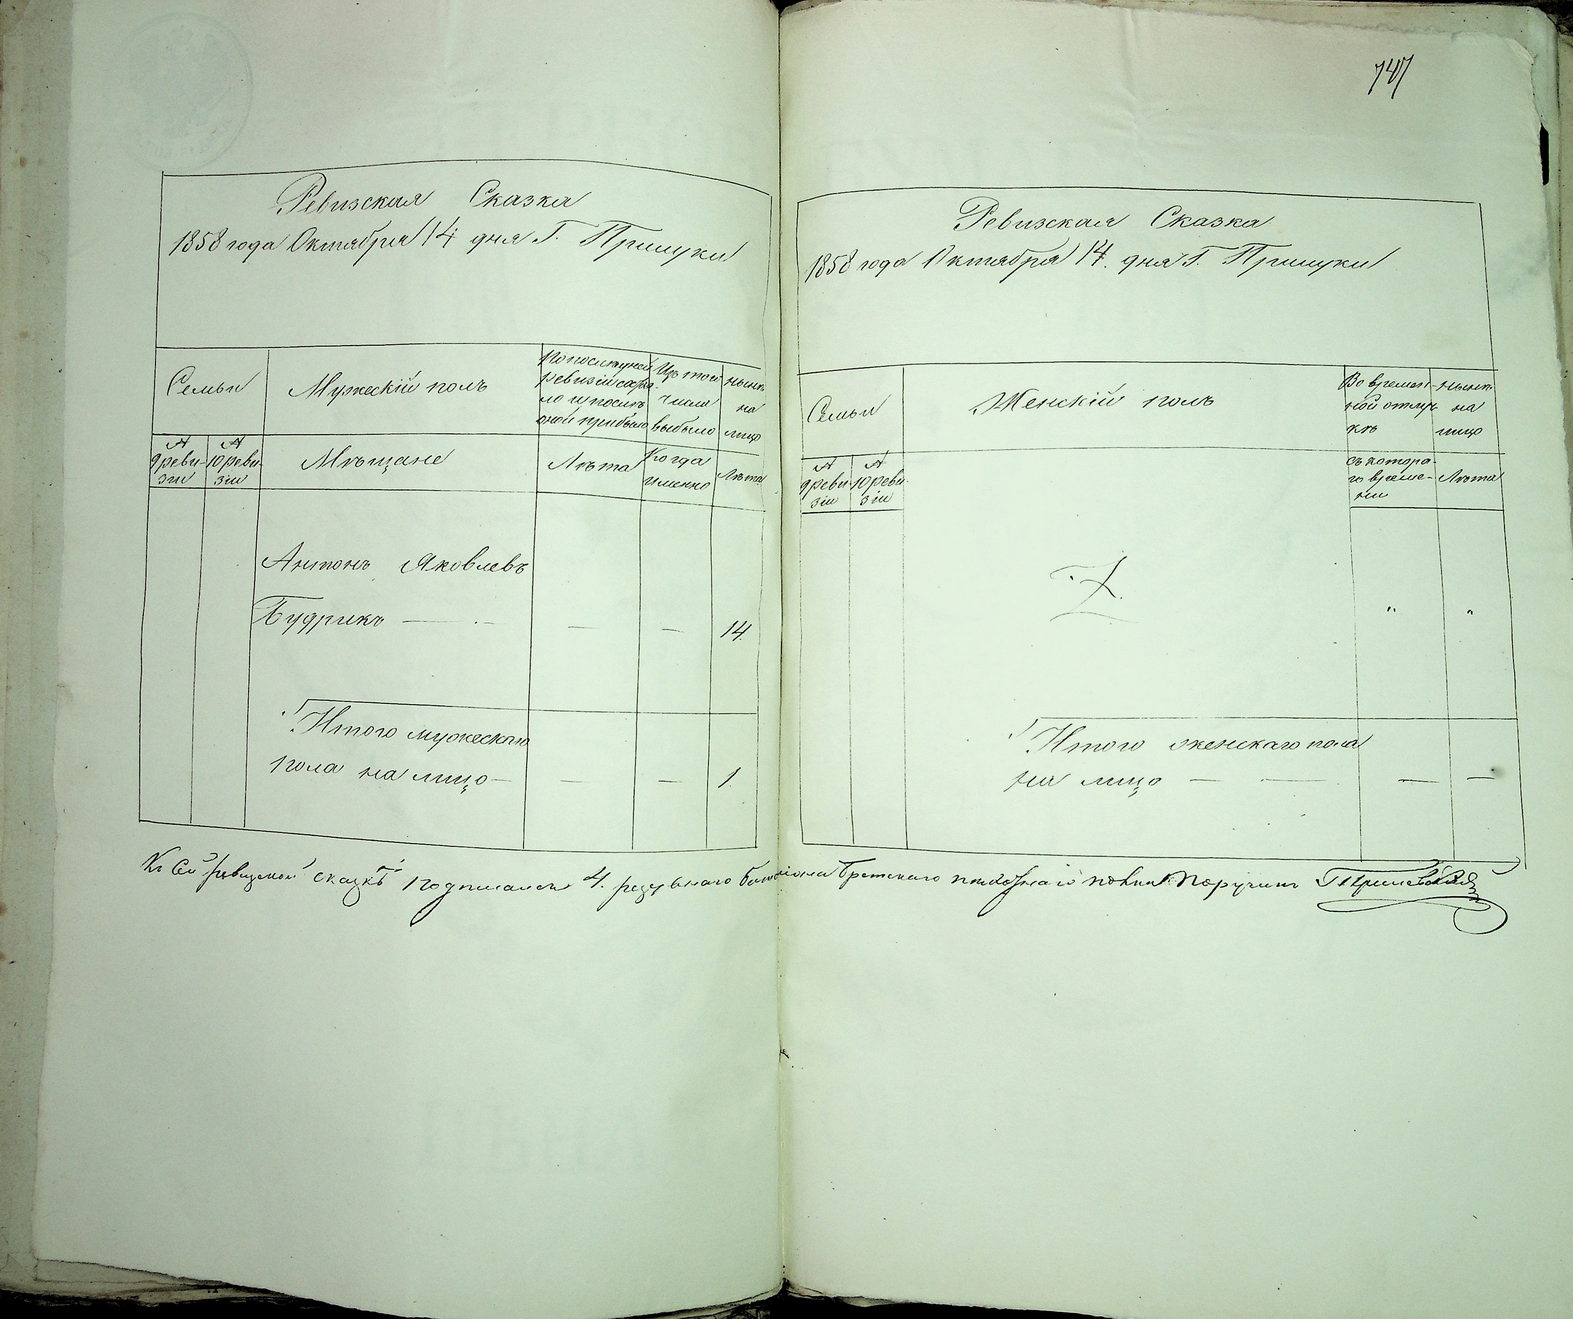 747
Ревизская Сказка
1858 года Октября 14 дня Г. Прилуки
Семьи
Мужескій полъ
По последней
ревизіи состо-
ной прибыло
Изъ того
числа
выбыло
нынѣ
на
лицо
№
9 реви-
зіи
№
10 реви-
зіи
Мѣщане
Лѣта
Когда
именно
Лѣта
Антонъ Яковлевъ
Будрикъ — — — 14
Итого мужескаго
пола на лицо — — — 1.
Ревизская Сказка
1858 года Октября 14. дня Г. Прилуки
Семьи
Женскій полъ
Во времен-
ной отлуч-
кѣ
нынѣ
на
лицо
№
9 реви-
зіи
№
10 реви-
зіи
съ котора-
го време-
ни
Лѣта
" "
Итого женскаго пола
на лицо — — — —
Къ сей ревизской сказкѣ подписался 4. резервнаго баталіона Брестскаго пѣхотнаго полка Порутчикъ